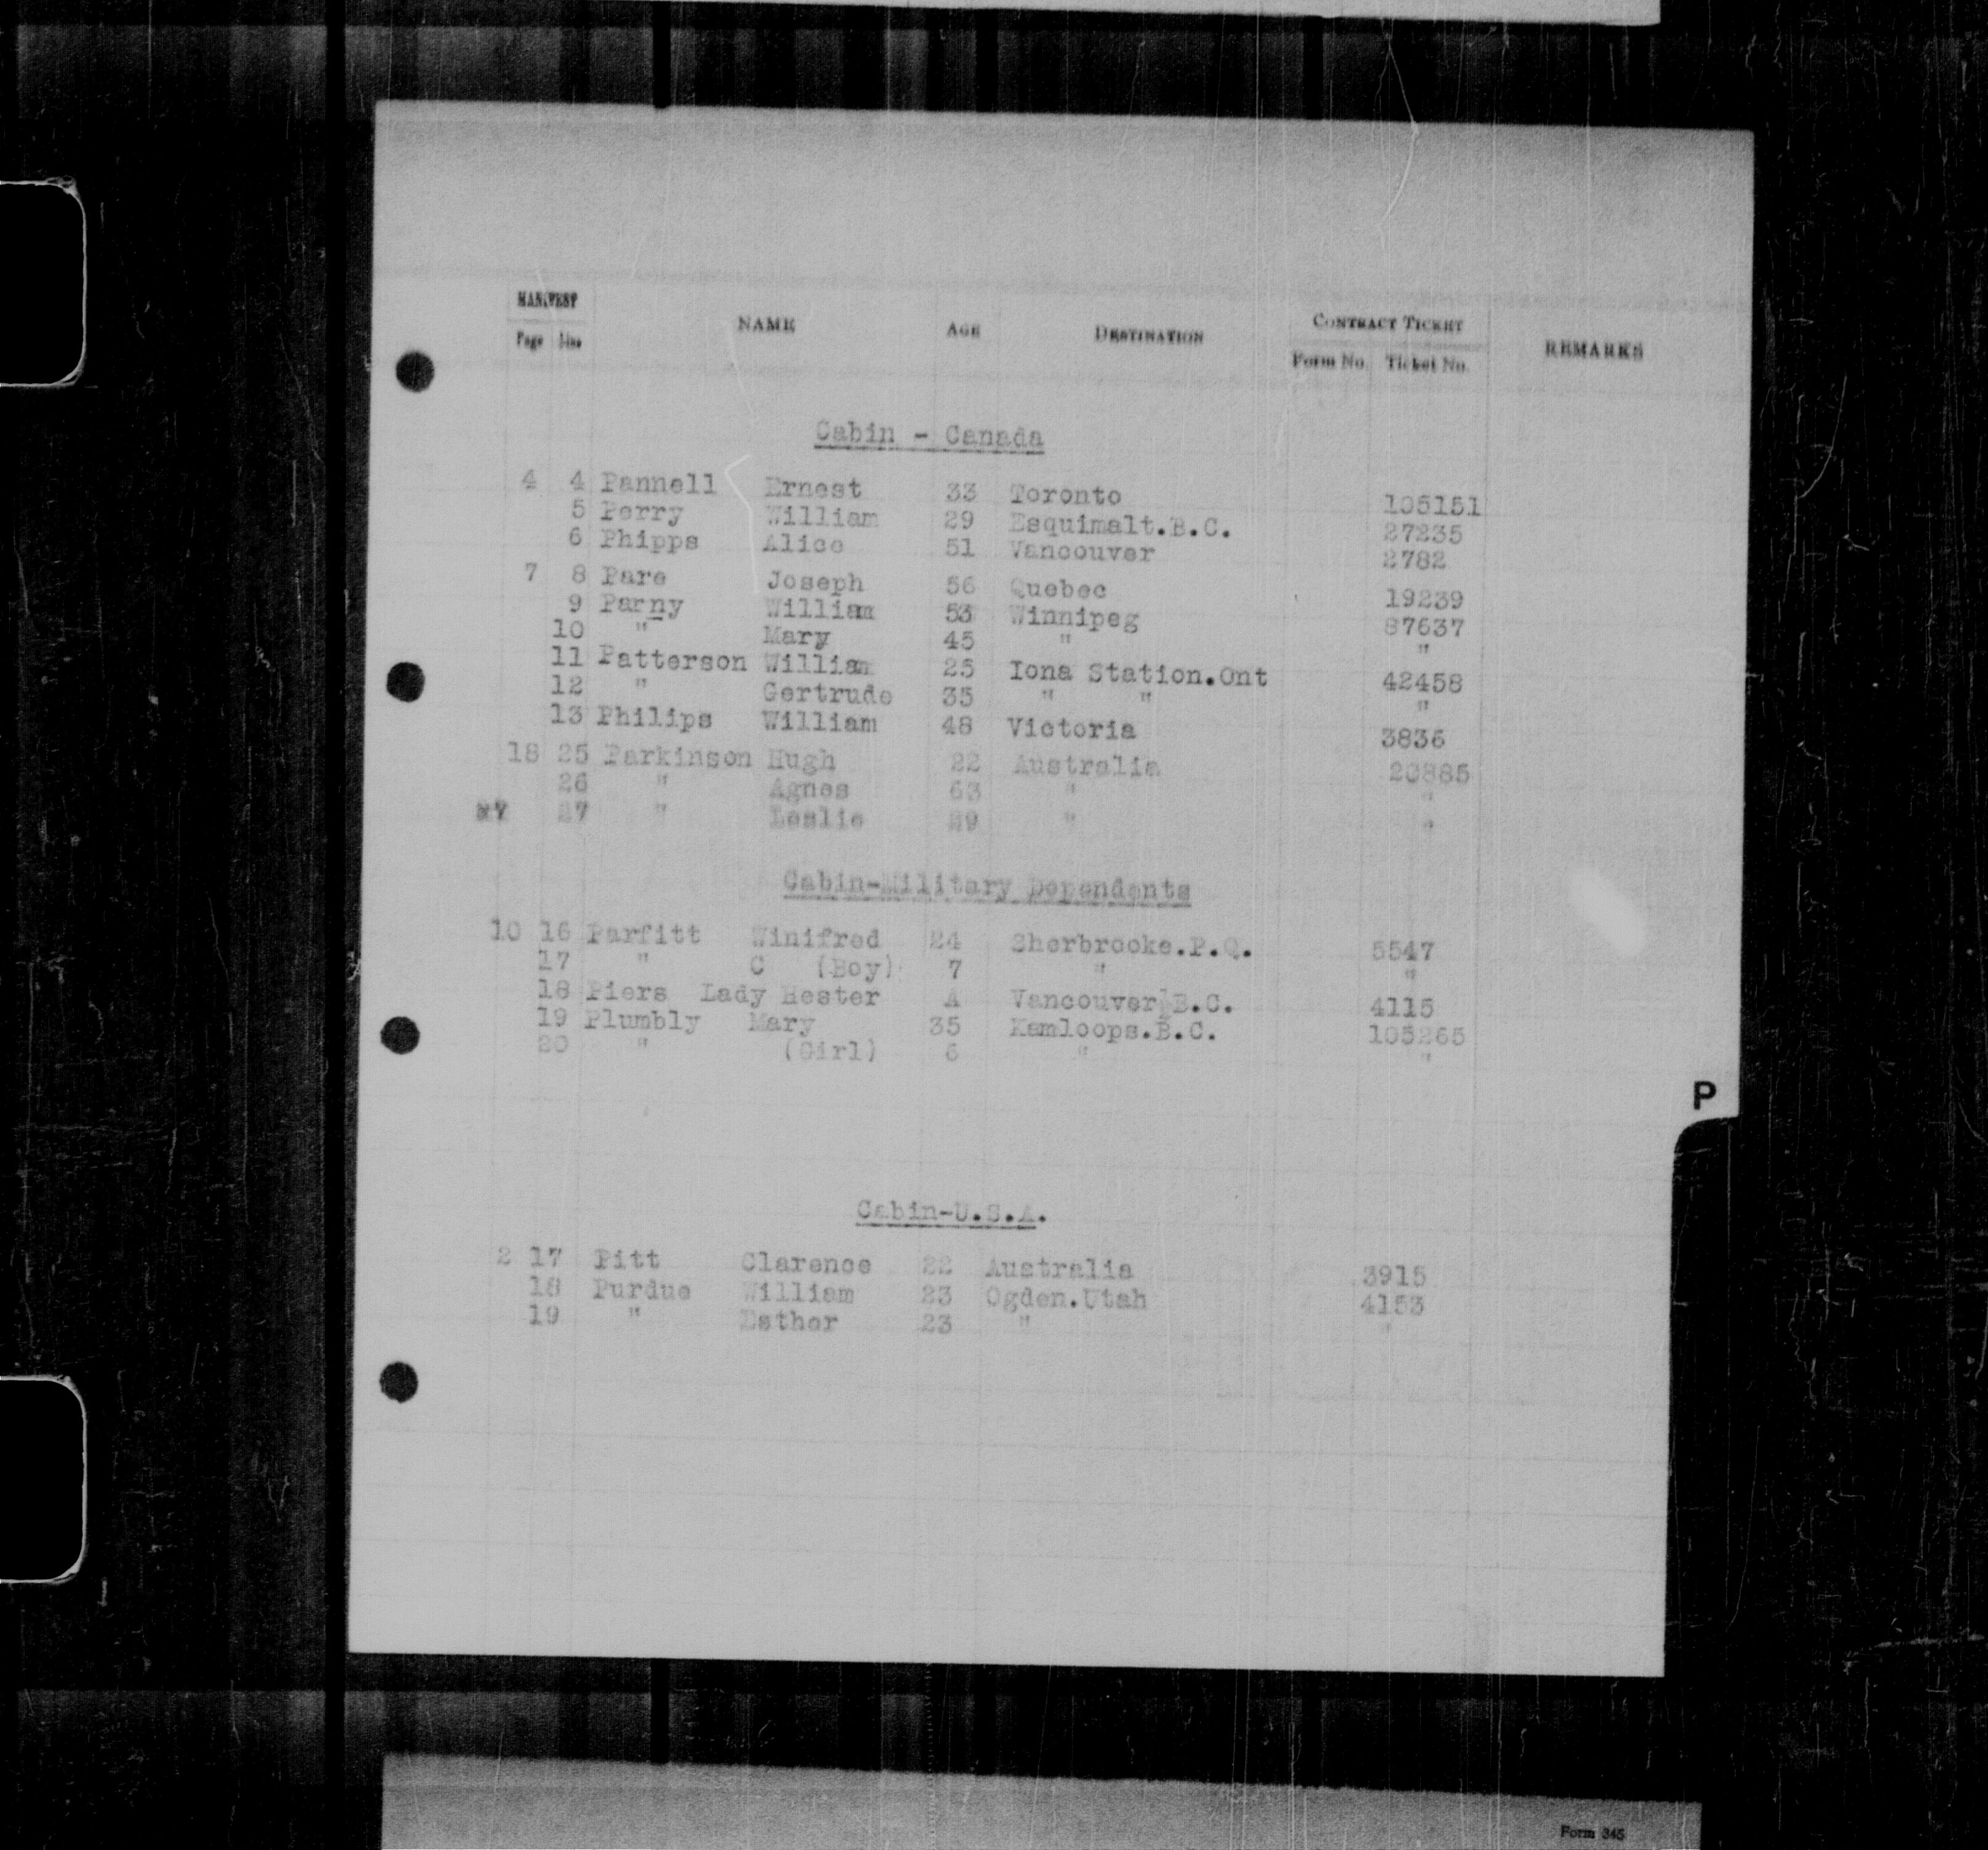 MANIFEST
Page Line NAME AGE DESTINATION CONTRACT TICKET REMARKS
Form No. Ticket No.
Cabin - Canada
4 4 Pannell Ernest 33 Toronto 105151
5 Perry William 29 Esquimalt.B.C. 27235
6 Phipps Alice 51 Vancouver 2782
7 8 Pare Joseph 56 Quebec 19239
9 Parny William 53 Winnipeg 87637
10 " Mary 45 " "
11 Patterson William 25 Iona Station.Ont 42458
12 " Gertrude 35 " " "
13 Philips William 48 Victoria 3836
18 25 Parkinson Hugh 22 Australia 20885
26 " Agnes 63 " "
27 " Leslie 29 " "
Cabin-Military Dependents
10 16 Parfitt Winifred 24 Sherbrooke.P.Q. 5547
17 " C (Boy) 7 " "
18 Piers Lady Hester A Vancouver B.C. 4115
19 Plumbly Mary 35 Kamloops.B.C. 105265
20 " (Girl) 6 " "
P
Cabin-U.S.A.
2 17 Pitt Clarence 22 Australia 3915
18 Purdue William 23 Ogden.Utah 4153
19 " Esther 23 " "
Form 345